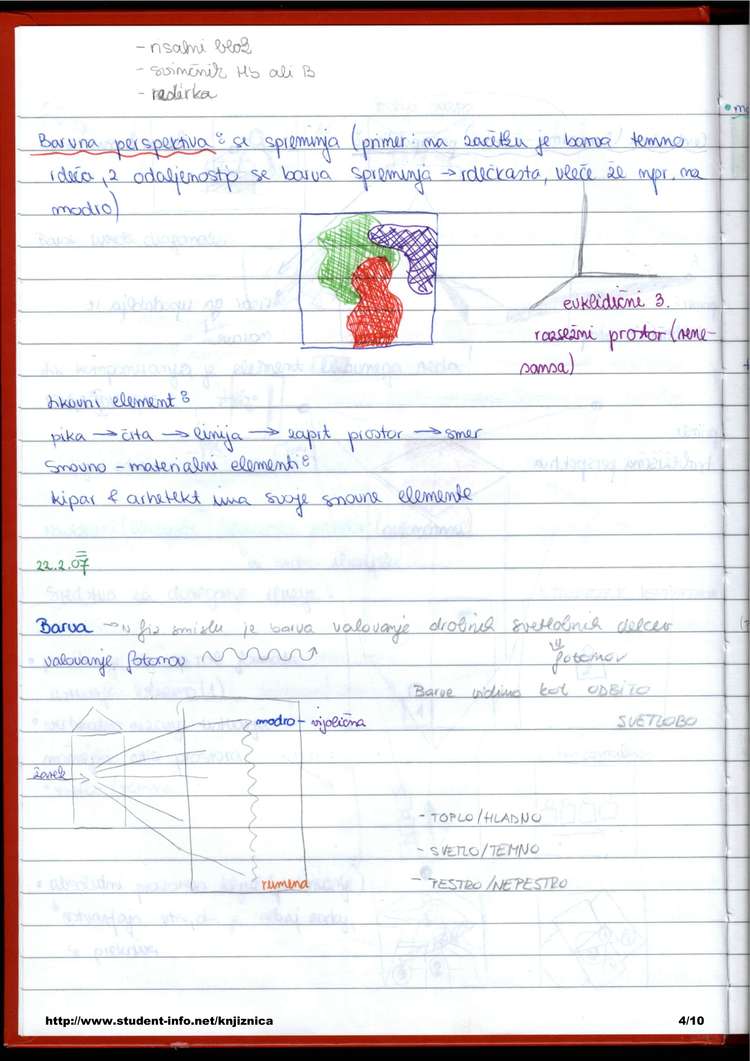 - risalni blok
- svinčnik Hb ali B
- radirka
Barvna perspektiva: se spreminja (primer: na začetku je barva temno
rdeča, z odaljenostjo se barva spreminja → rdečkasta, vleče že npr. na
modro)
evklidični 3.
razsežni prostor (rene-
sansa)
likovni element:
pika → črta → linija → zaprt prostor → smer
Snovno - materialni elementi:
kipar & arhetekt ima svoje snovne elemente
22.2.07
Barva → v fiz smislu je barva valovanje drobnih svetlobnih delcev
valovanje fotonov
fotonov
Barve vidimo kot ODBITO
SVETLOBO
modro - vijolična
žarek
- TOPLO/HLADNO
- SVETLO/TEMNO
- PESTRO/NEPESTRO
rumena
http://www.student-info.net/knjiznica
4/10